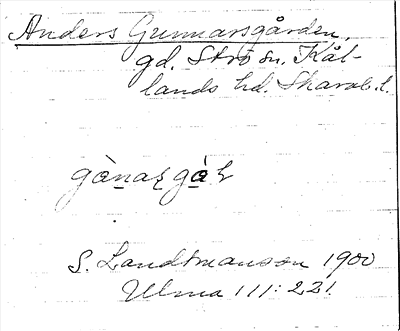 Anders Gunnarsgården,
gd. Strö sn. Kål-
lands hd. Skarab. l.
S. Landtmanson 1900
Ulma 111:221.